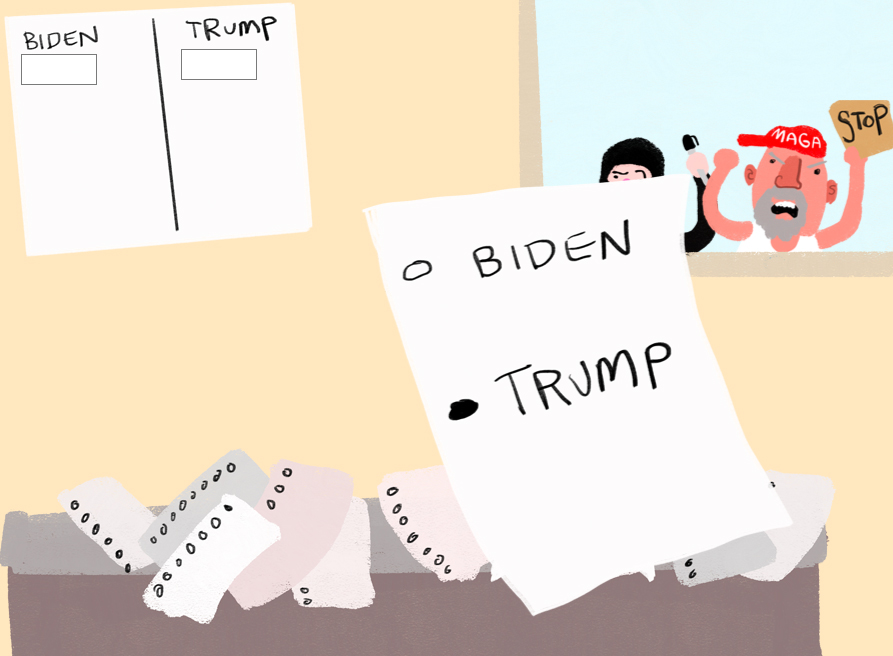 BIDEN
TRUMP
MAGA
STOP
BIDEN
TRUMP